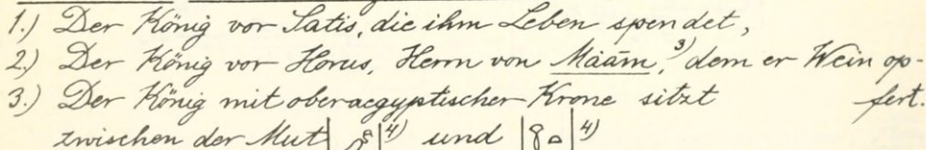 1.) Der König vor Satis, die ihm Leben spendet,
2.) Der König vor Horus, Herrn von Máām,³⁾ dem er Wein op-
fert.
3.) Der König mit oberaegyptischer Krone sitzt
zwischen der Mut ⁴⁾ und ⁴⁾